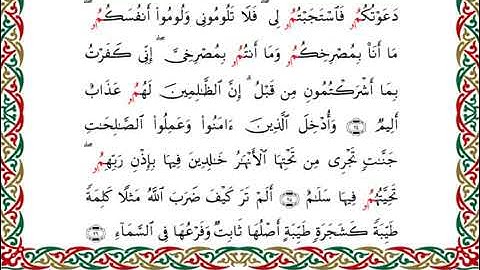 دَعَوْتُكُمُۥ فَٱسْتَجَبْتُمُۥ لِى ۖ فَلَا تَلُومُونِى وَلُومُوا۟ أَنفُسَكُمُۥ ۖ
مَا أَنَا۠ بِمُصْرِخِكُمُۥ وَمَا أَنتُمُۥ بِمُصْرِخِىَّ ۖ إِنِّى كَفَرْتُ
بِمَا أَشْرَكْتُمُونِ مِن قَبْلُ ۗ إِنَّ ٱلظَّٰلِمِينَ لَهُمُۥ عَذَابٌ
أَلِيمٌ ٢٤ وَأُدْخِلَ ٱلَّذِينَ ءَامَنُوا۟ وَعَمِلُوا۟ ٱلصَّٰلِحَٰتِ
جَنَّٰتٍ تَجْرِى مِن تَحْتِهَا ٱلْأَنْهَٰرُ خَٰلِدِينَ فِيهَا بِإِذْنِ رَبِّهِمُۥ ۖ
تَحِيَّتُهُمُۥ فِيهَا سَلَٰمٌ ٢٥ أَلَمْ تَرَ كَيْفَ ضَرَبَ ٱللَّهُ مَثَلًا كَلِمَةً
طَيِّبَةً كَشَجَرَةٍ طَيِّبَةٍ أَصْلُهَا ثَابِتٌ وَفَرْعُهَا فِى ٱلسَّمَآءِ ٢٦